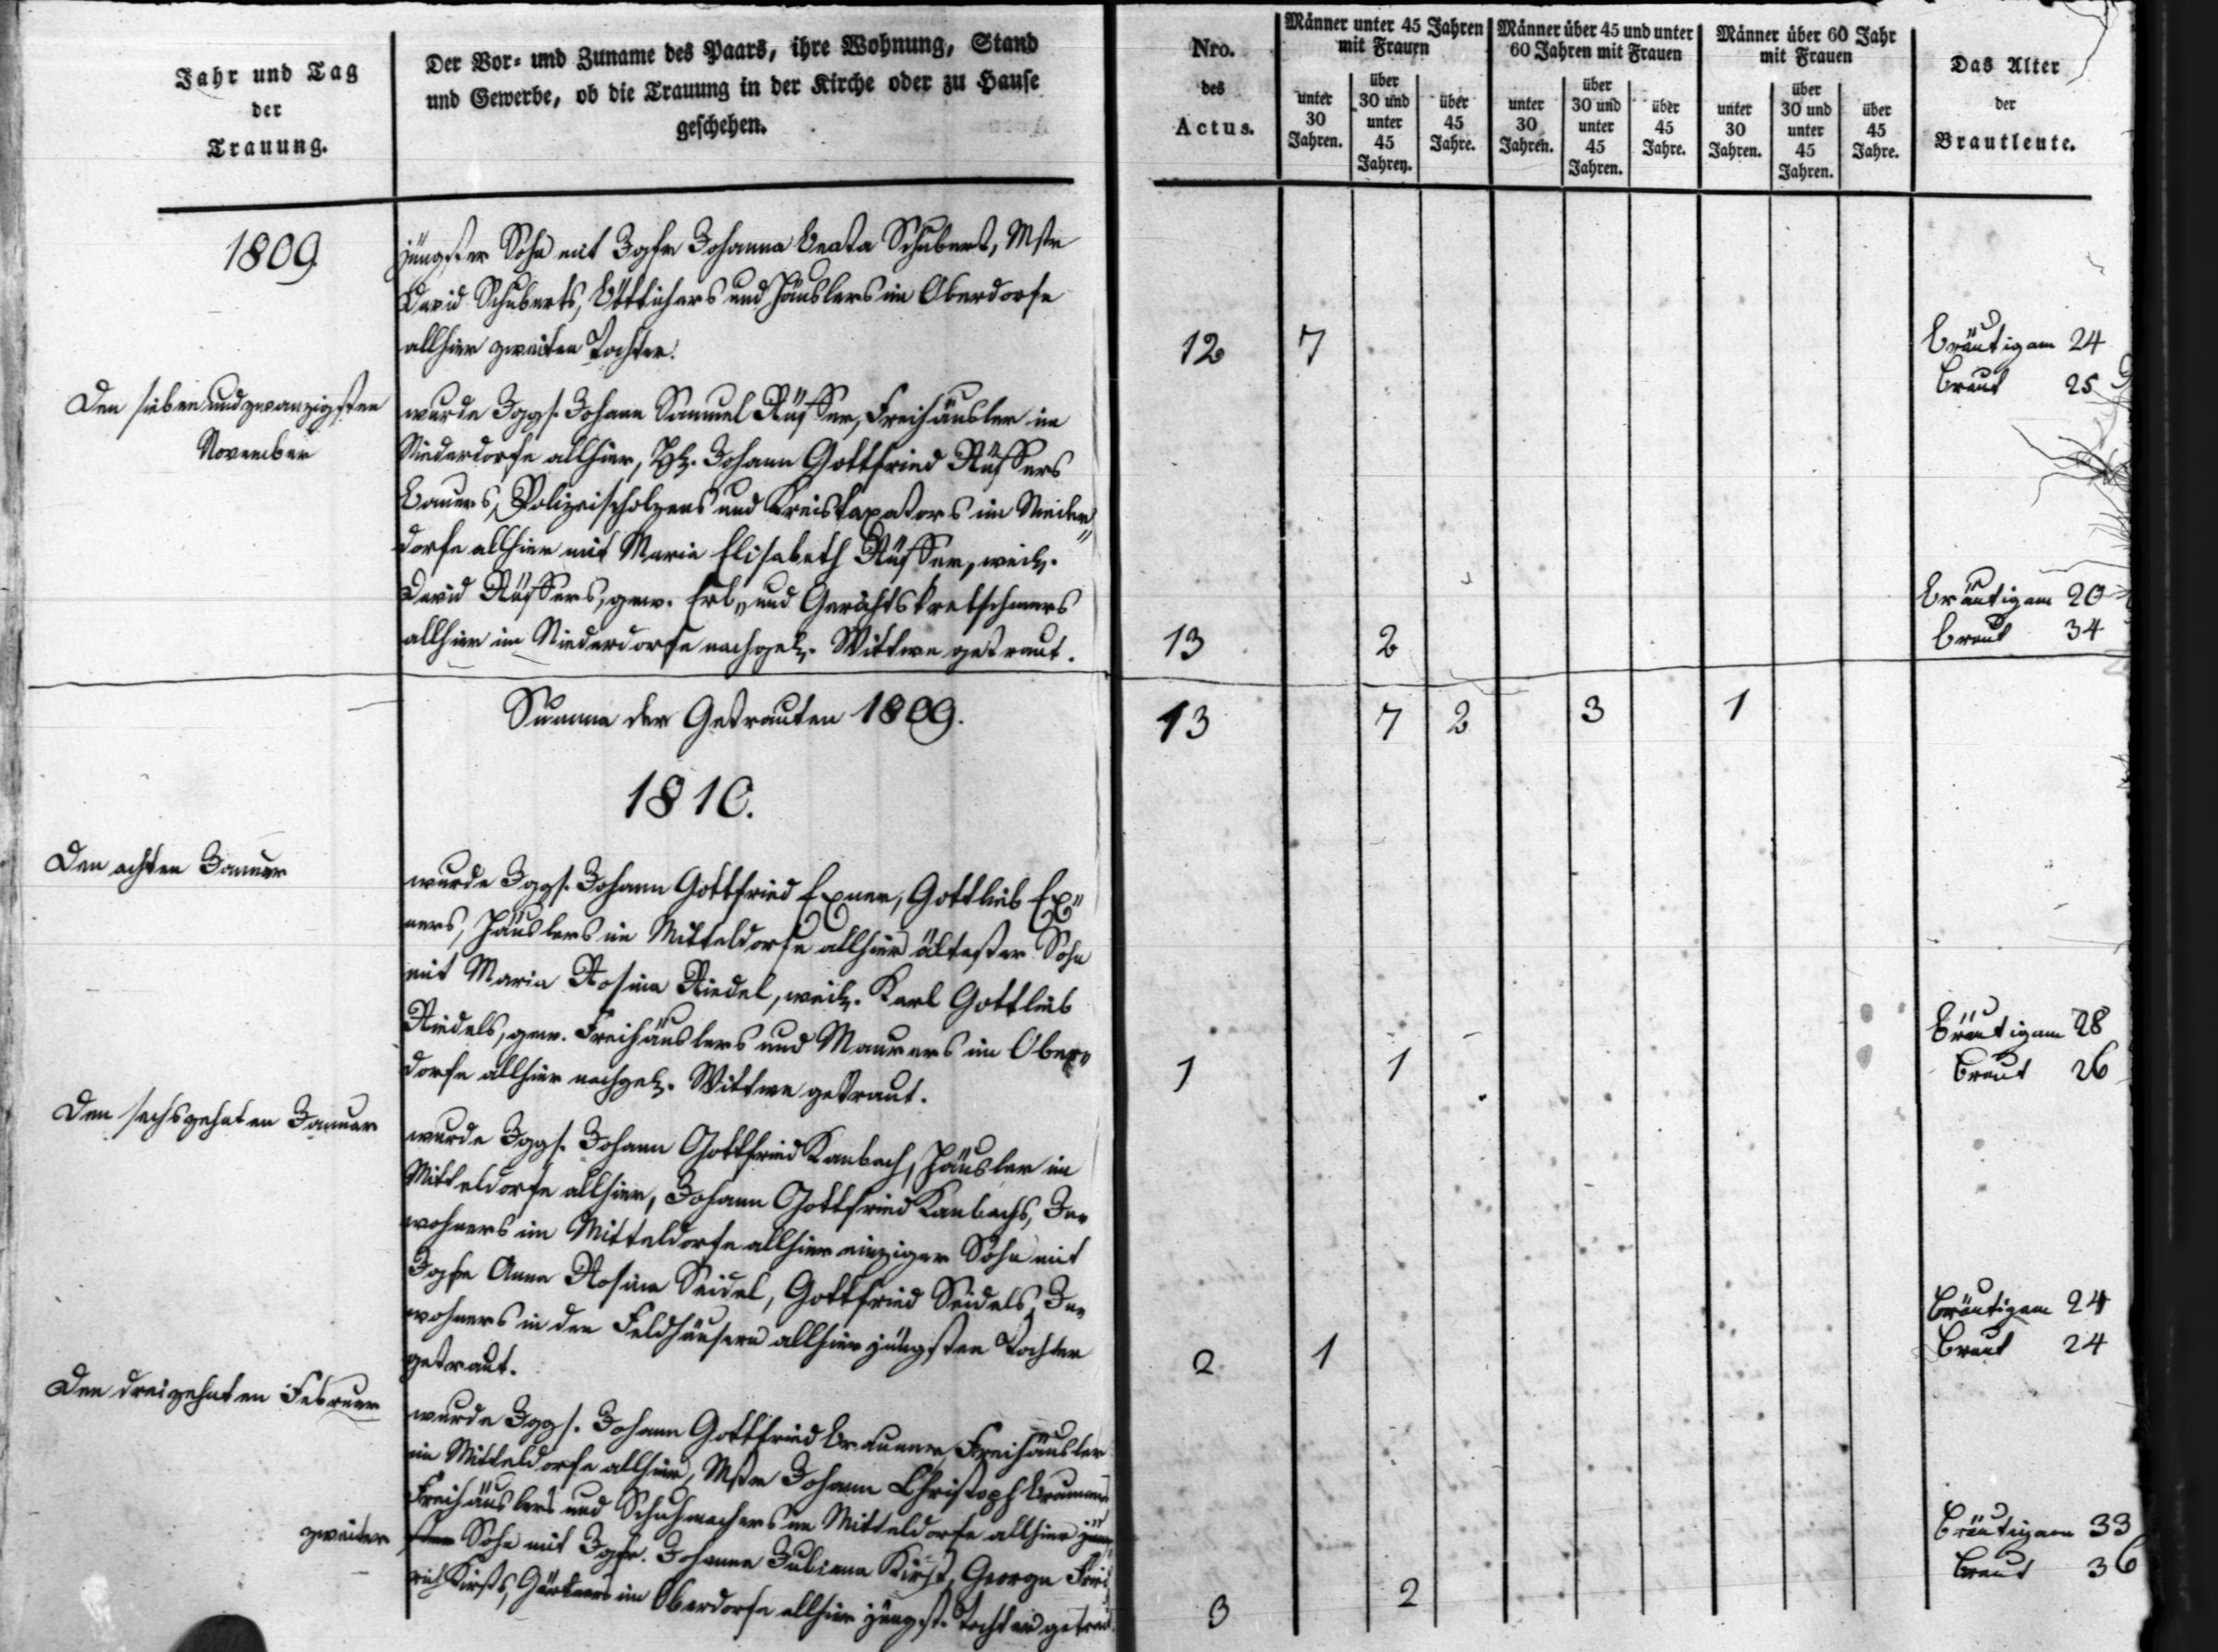 Jahr und Tag
der
Trauung.
Der Vor- und Zuname des Paars, ihre Wohnung, Stand
und Gewerbe, ob die Trauung in der Kirche oder zu Hause
geschehen.
Nro.
des
Actus.
Männer unter 45 Jahren
mit Frauen
unter
30
Jahren.
über
30 und
unter
45
Jahren.
über
45
Jahre.
Männer über 45 und unter
60 Jahren mit Frauen
unter
30
Jahren.
über
30 und
unter
45
Jahren.
über
45
Jahre.
Männer über 60 Jahr
mit Frauen
unter
30
Jahren.
über
30 und
unter
45
Jahren.
über
45
Jahre.
Das Alter
der
Brautleute.
1809.
jüngster Sohn mit Jgfr Johanna Beata Schubert, Mstr
David Schuberts, Böttichers und Häuslers im Oberdorfe
allhier zweiten Tochter.
12 7
Bräutigam 24
Braut 25
Den sieben und zwanzigsten
November
wurde Jggs. Johann Samuel Rüffer, Freihäusler im
Niederdorfe allhier, Johann Gottfried Rüffers
Bauers, Polizeischolzens und Kreistaxators im Nieder„
dorfe allhier mit Maria Elisabeth Rüffer, weil.
David Rüffers, gew. Erb„ und Gerichtskretschmers
allhier im Niederdorfe nachgel. Wittwe getraut.
13 2
Bräutigam 20
Braut 34
Summa der Getrauten 1809.
13 7 2 3 1
1810.
Den achten Januar
wurde Jggs. Johann Gottfried Exner, Gottlieb Ex„
ners, Häuslers im Mitteldorfe allhier ältester Sohn
mit Maria Rosina Riedel, weil. Karl Gottlieb
Riedels, gew. Freihäuslers und Maurers im Ober„
dorfe allhier nachgel. Wittwe getraut.
1 1
Bräutigam 28
Braut 26
Den sechszehnten Januar
wurde Jggs. Johann Gottfried Kambach, Häusler im
Mitteldorfe allhier, Johann Gottfried Kambachs, In„
wohners im Mitteldorfe allhier einziger Sohn mit
Jgfr Anna Rosina Seidel, Gottfried Seidels, In„
wohners in den Feldhäusern allhier jüngsten Tochter
getraut.
2 1
Bräutigam 24
Braut 24
Den dreizehnten Februar
wurde Jggs. Johann Gottfried Freihäusler
im Mitteldorfe allhier, Mstr Johann Christoph
Freihäuslers und Schuhmachers im Mitteldorfe allhier
zweiter
Sohn mit Jgfr. Johanna Juliana Kirst, George Fried„
rich Kirsts, Gärtners im Oberdorfe allhier jüngst. Tochter getraut.
3 2
Bräutigam 33
Braut 36